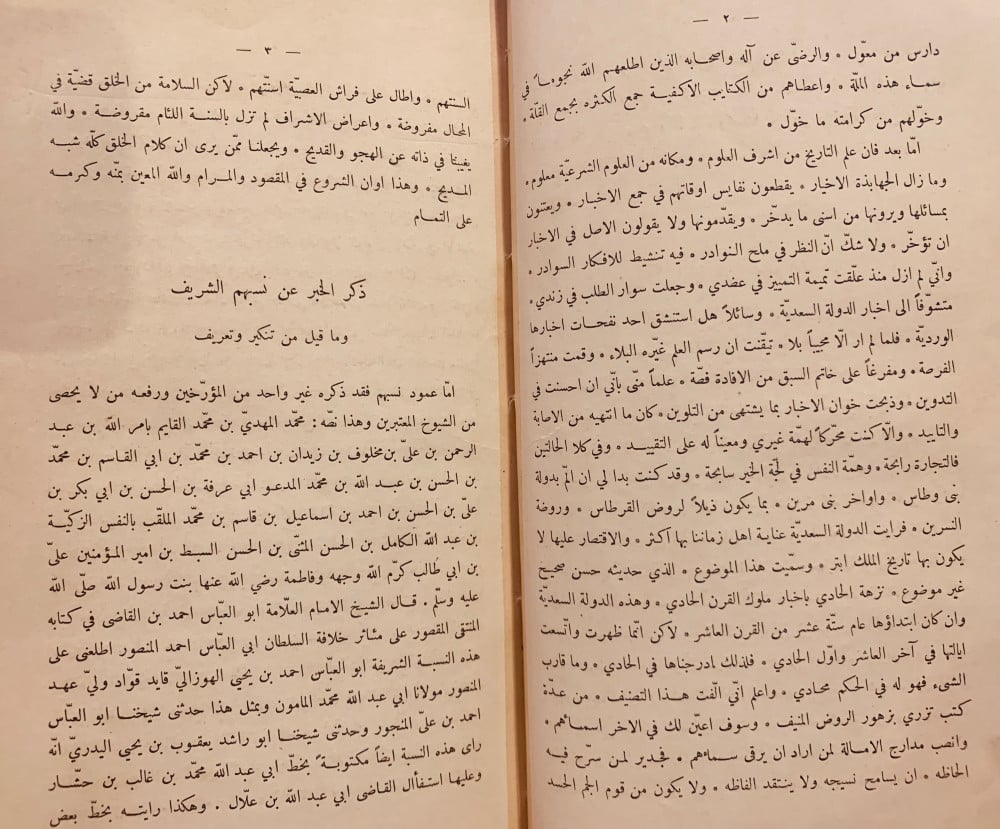 — ٢ —
دارس من معوّل ٠ والرضّى عن آله واصحابه الذين اطلعهم الله نجوماً في
سماء هذه الملّة ٠ واعطاهم من الكتايب الاكفية جمع الكثره بجمع القلّة ٠
وخوّلهم من كرامته ما خوّل ٠
امّا بعد فان علم التاريخ من اشرف العلوم ٠ ومكانه من العلوم الشرعيّة معلوم ٠
وما زال الجهابذة الاخبار ٠ يقطعون نفايس اوقاتهم في جمع الاخبار ٠ ويعتنون
بمسائلها ويرونها من اسنى ما يدخّر ٠ ويقدّمونها ولا يقولون الاصل في الاخبار
ان تؤخّر ٠ ولا شكّ انّ النظر في ملح النوادر ٠ فيه تنشيط للافكار السوادر ٠
وانّي لم ازل منذ علّقت تميمة التمييز في عضدي ٠ وجعلت سوار الطلب في زندي ٠
متشوّفاً الى اخبار الدولة السعديّة ٠ وسائلاً هل استنشق احد نفحات اخبارها
الورديّة ٠ فلما لم ار الّا مجيباً بلا ٠ تيقّنت ان رسم العلم غيّره البلاء ٠ وقمت منتهزاً
الفرصة ٠ ومفرغاً على خاتم السبق من الافادة فصّة ٠ علماً منّى بانّي ان احسنت في
التدوين ٠ وذبحت خوان الاخبار بما يشتهى من التلوين ٠ كان ما انتهيه من الاصابة
والتاييد ٠ والّا كنت محرّكاً لهمّة غيري ومعيناً له على التقييد ٠ وفي كلا الحالتين
فالتجارة رابحة ٠ وهمّة النفس في لجّة الخير سابحة ٠ وقد كنت بدا لي ان المّ بدولة
بنى وطاس ٠ واواخر بنى مرين ٠ بما يكون ذيلاً لروض القرطاس ٠ وروضة
النسرين ٠ فرايت الدولة السعديّة عناية اهل زماننا بها أكثر ٠ والاقتصار عليها لا
يكون بها تاريخ الملك ابتر ٠ وسمّيت هذا الموضوع ٠ الذي حديثه حسن صحيح
غير موضوع ٠ نزهة الحادي باخبار ملوك القرن الحادي ٠ وهذه الدولة السعديّة
وان كان ابتداؤها عام ستّة عشر من القرن العاشر ٠ لاكن انّما ظهرت واتّسعت
ايالتها في آخر العاشر واوّل الحادي ٠ فلذلك ادرجناها في الحادي ٠ وما قارب
الشىء فهو له في الحكم محادي ٠ واعلم انّي الّفت هذا التصنيف ٠ من عدّة
كتب تزري بزهور الروض المنيف ٠ وسوف اعيّن لك في الاخر اسماءهم ٠
وانصب مدارج الامالة لمن اراد ان يرقى سماءهم ٠ فجدير لمن سرّح فيه
الحاظه ٠ ان يسامح نسيجه ولا ينتقد الفاظه ٠ ولا يكون من قوم الجم الحسد
— ٣ —
السنتهم ٠ واطال على فراش العصيّة اسنّتهم ٠ لاكن السلامة من الخلق قضيّة في
المحال مفروضة ٠ واعراض الاشراف لم تزل بالسنة اللئام مقروضة ٠ والله
يغيبنا في ذاته عن الهجو والقديح ٠ ويجعلنا ممّن يرى ان كلام الخلق كلّه شبه
المديح ٠ وهذا اوان الشروع في المقصود والمرام والله المعين بمنّه وكرمه
على التمام
ذكر الخبر عن نسبهم الشريف
وما قيل من تنكير وتعريف
امّا عمود نسبهم فقد ذكره غير واحد من المؤرّخين ورفعه من لا يحصى
من الشيوخ المعتبرين وهذا نصّه : محمّد المهديّ بن محمّد القايم بامر الله بن عبد
الرحمن بن علىّ بن مخلوف بن زيدان بن احمد بن محمّد بن ابي القاسم بن محمّد
بن الحسن بن عبد الله بن محمّد المدعو ابي عرفة بن الحسن بن ابي بكر بن
علىّ بن الحسن بن احمد بن اسماعيل بن قاسم بن محمّد الملقّب بالنفس الزكيّة
بن عبد الله الكامل بن الحسن المثنّى بن الحسن السبط بن امير المؤمنين علىّ
بن ابي طالب كرّم الله وجهه وفاطمة رضي الله عنها بنت رسول الله صلّى الله
عليه وسلّم . قال الشيخ الامام العلّامة ابو العبّاس احمد بن القاضى في كتابه
المنتقى المقصور على مئاثر خلافة السلطان ابي العبّاس احمد المنصور اطلعنى على
هذه النسبة الشريفة ابو العبّاس احمد بن يحيى الهوزاليّ قايد قوّاد وليّ عهد
المنصور مولانا ابي عبد الله محمّد المامون وبمثل هذا حدثنى شيخنا ابو العبّاس
احمد بن علىّ المنجور وحدثنى شيخنا ابو راشد يعقوب بن يحيى اليدريّ انّه
راى هذه النسبة ايضاً مكتوبة بخطّ ابي عبد الله محمّد بن غالب بن حشّار
وعليها استفأال القاضى ابي عبد الله بن علّال . وهكذا رايته بخطّ بعض